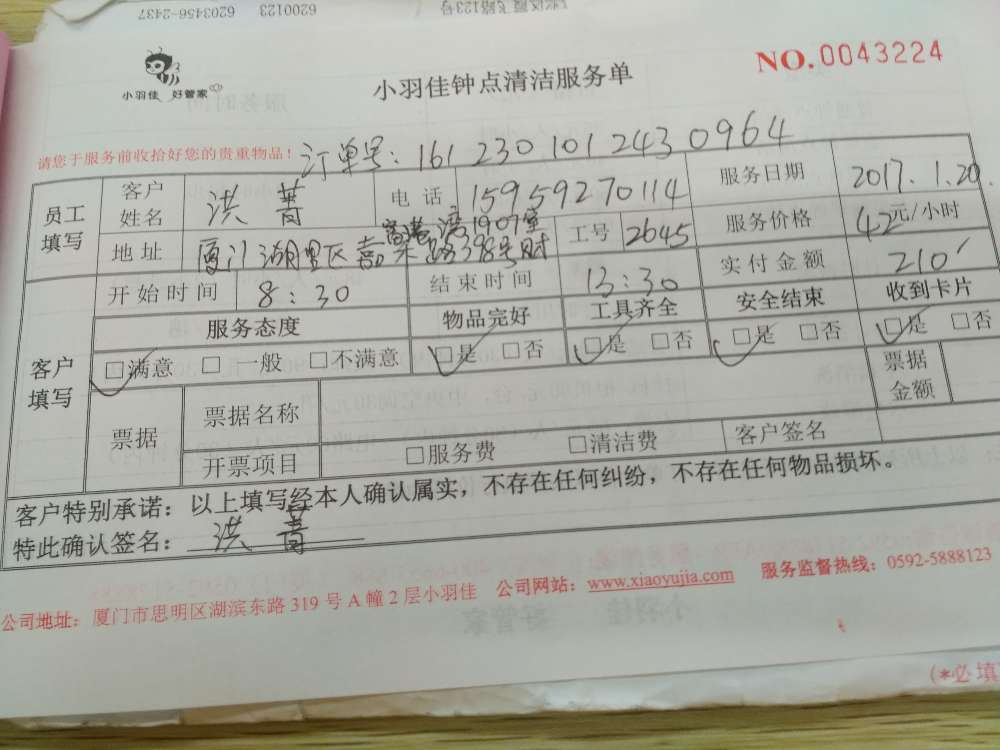 6203456-2437 6200123
小羽佳 好管家
小羽佳钟点清洁服务单
NO.0043224
请您于服务前收拾好您的贵重物品！ 订单号：161 230 101 2430964
员工填写 客户姓名 洪菁 电话 15959270114 服务日期 2017.1.20
地址 厦门湖里区嘉禾路398号财富港湾1907室 工号 2645 服务价格 42元/小时
开始时间 8：30 结束时间 13：30 实付金额 210
客户填写 服务态度 物品完好 工具齐全 安全结束 收到卡片
□满意 □一般 □不满意 □是 □否 □是 □否 □是 □否 □是 □否
票据 票据名称 票据金额
开票项目 □服务费 □清洁费 客户签名
客户特别承诺：以上填写经本人确认属实，不存在任何纠纷，不存在任何物品损坏。
特此确认签名：洪菁
公司地址：厦门市思明区湖滨东路319号A幢2层小羽佳 公司网站：www.xiaoyujia.com 服务监督热线：0592-5888123
(*必填